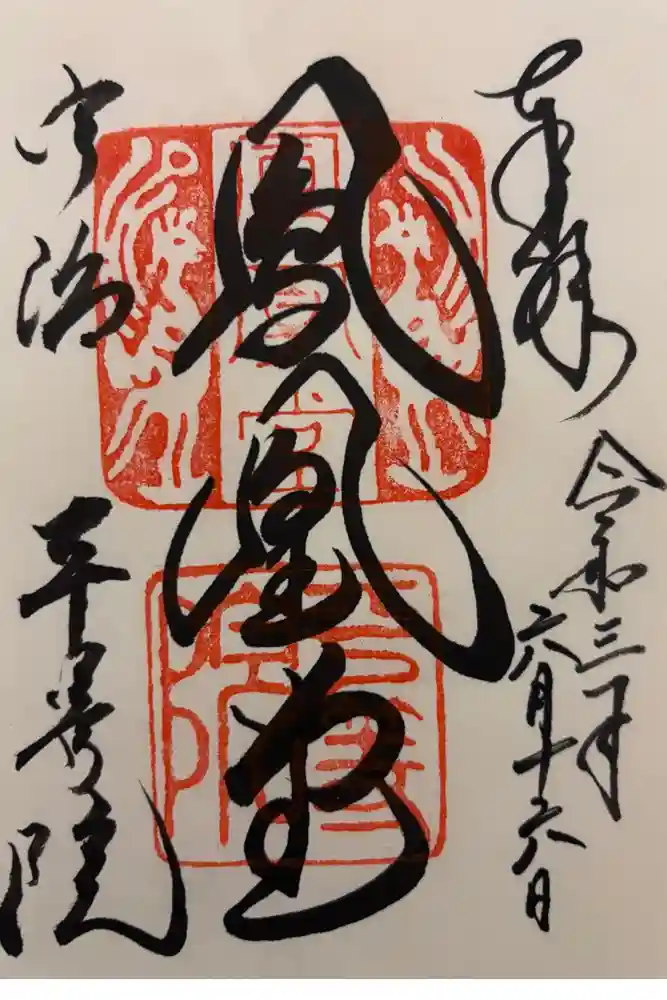 奉拝
令和三年
六月十六日
鳳凰堂
宇治
平等院